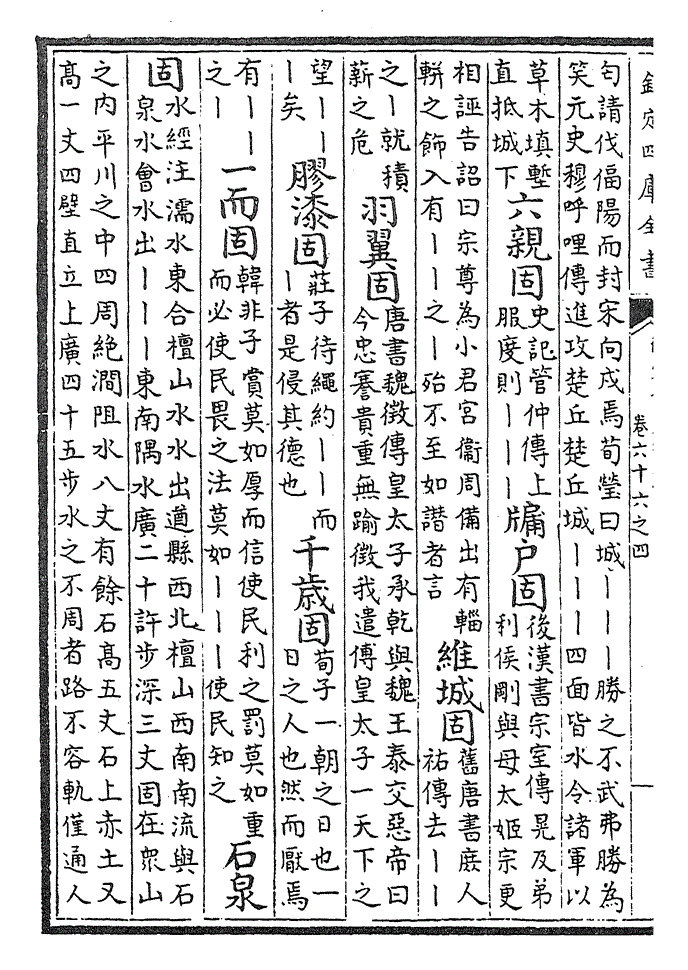 欽定四庫全書
卷六十六之四
匄請伐偪陽而封宋向戌焉荀罃曰城丨丨丨勝之不武弗勝為
笑元史穆呼哩傳進攻楚丘楚丘城丨丨丨四面皆水令諸軍以
草木填塹
直抵城下
六親固
史記管仲傳上
服度則丨丨丨
牖戶固
後漢書宗室傳晃及弟
利侯剛與母太姬宗更
相誣告詔曰宗尊為小君宮衞周備出有輜
軿之飾入有丨丨之丨殆不至如譖者言
維城固
舊唐書庶人
祐傳去丨丨
之丨就積
薪之危
羽翼固
唐書魏徵傳皇太子承乾與魏王泰交惡帝曰
今忠謇貴重無踰徵我遣傅皇太子一天下之
望丨丨
丨矣
膠漆固
莊子待繩約丨丨而
丨者是侵其德也
千歲固
荀子一朝之日也一
日之人也然而厭焉
有丨丨
之丨
一而固
韓非子賞莫如厚而信使民利之罰莫如重
而必使民畏之法莫如丨丨丨使民知之
石泉
固
水經注濡水東合檀山水水出遒縣西北檀山西南南流與石
泉水會水出丨丨丨東南隅水廣二十許步深三丈固在衆山
之內平川之中四周絶澗阻水八丈有餘石髙五丈石上赤土又
髙一丈四壁直立上廣四十五步水之不周者路不容軌僅通人